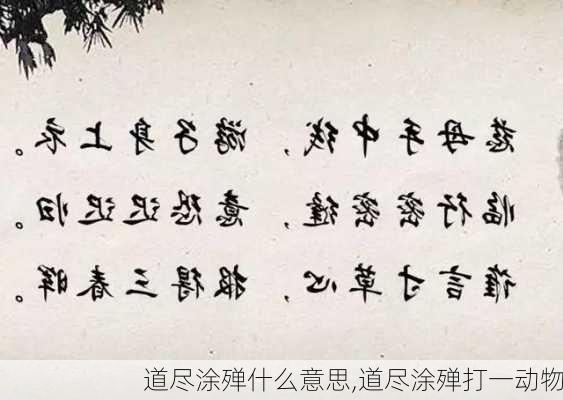 慈母手中线，游子身上衣。
临行密密缝，意恐迟迟归。
谁言寸草心，报得三春晖。
道尽涂殚什么意思,道尽涂殚打一动物